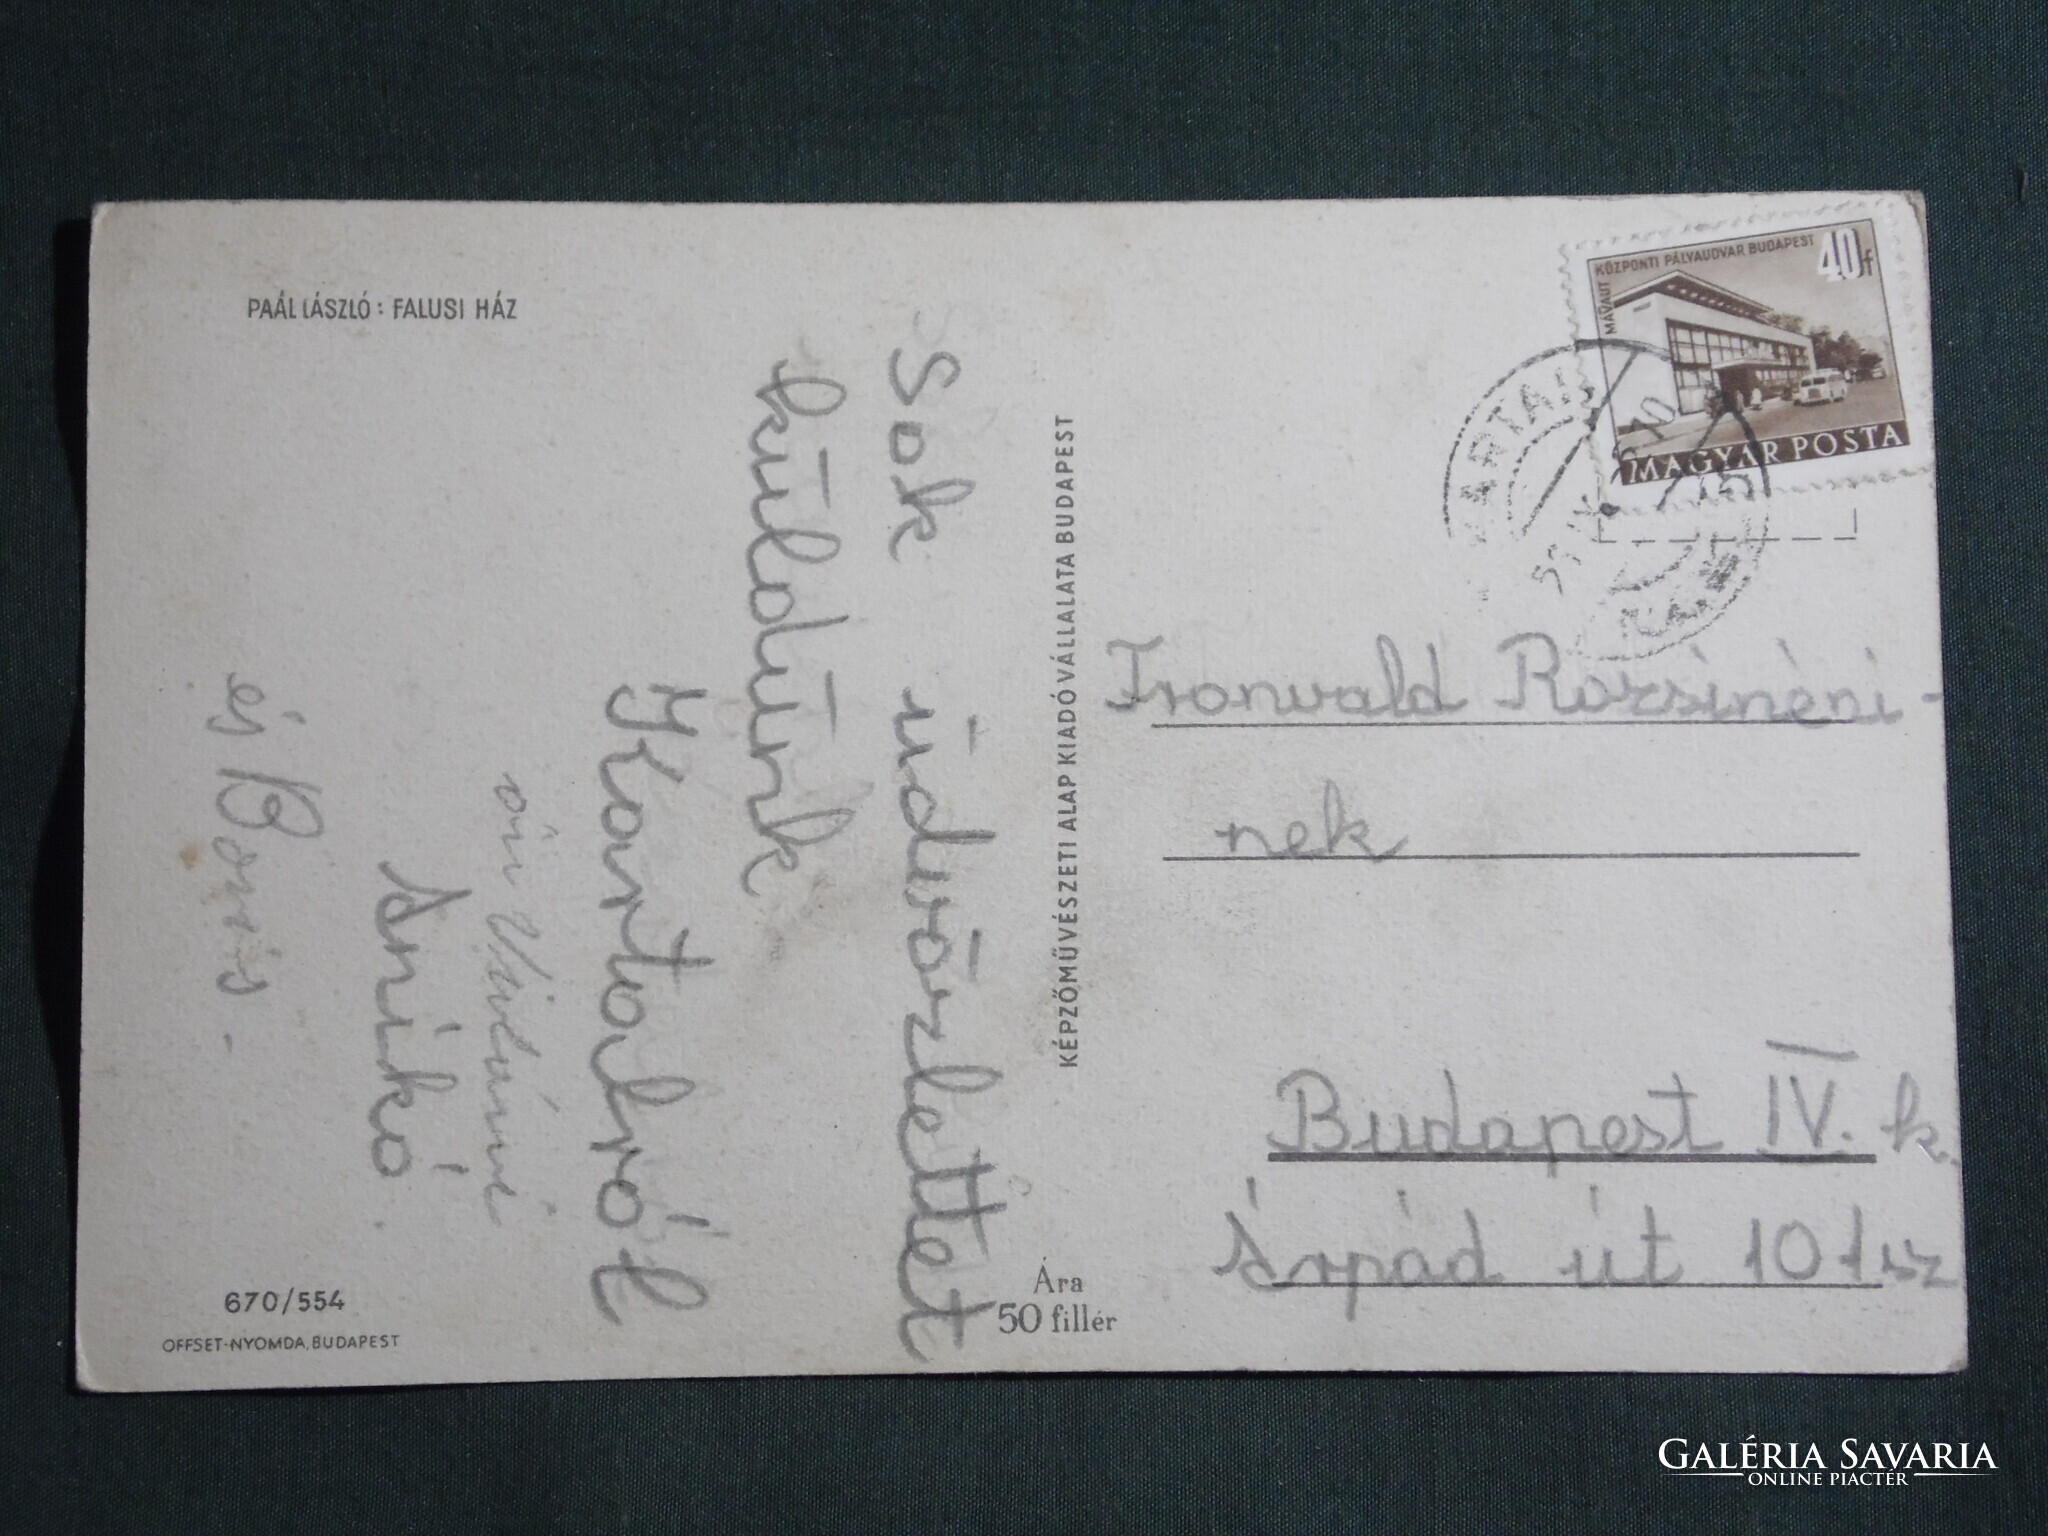 PAÁL LÁSZLÓ: FALUSI HÁZ
Sok üdvözlettet
küldünk
Kartalról
Anikó.
és
670/554
OFFSET-NYOMDA, BUDAPEST
KÉPZŐMŰVÉSZETI ALAP KIADÓVÁLLALATA BUDAPEST
Ára
50 fillér
MÁVAUT KÖZPONTI PÁLYAUDVAR BUDAPEST
40f
MAGYAR POSTA
Tronvald Rozsinéni-
nek
Budapest IV. k.
Árpád út 101 sz
GALÉRIA SAVARIA
ONLINE PIACTÉR